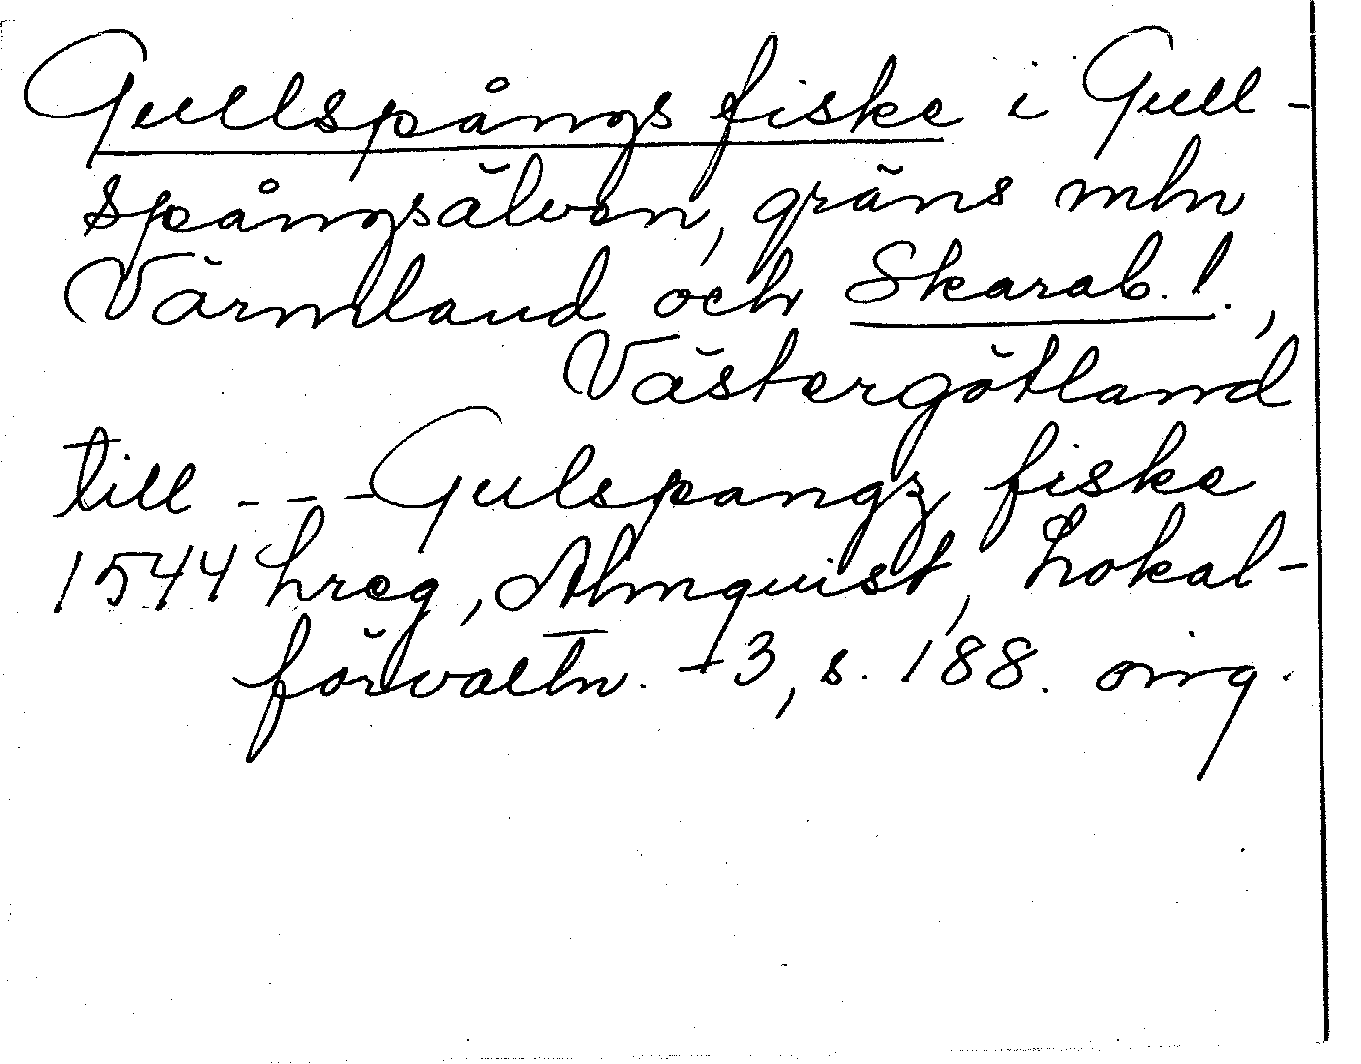 Gullspångs fiske i Gull-
spångsälven, gräns mln
Värmland och Skarab. l.,
Västergötland
till --- Gulspangz fiske
1544 hreg, Almquist, Lokal-
förvaltn. +3, s. 188. orig.